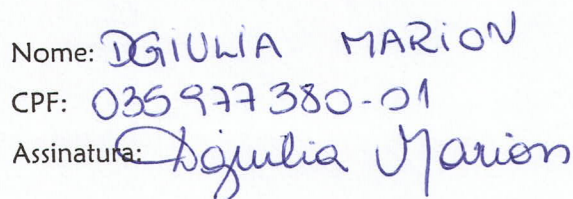 Nome: DGIULIA MARION
CPF: 035977380-01
Assinatura: Dgiulia Marion